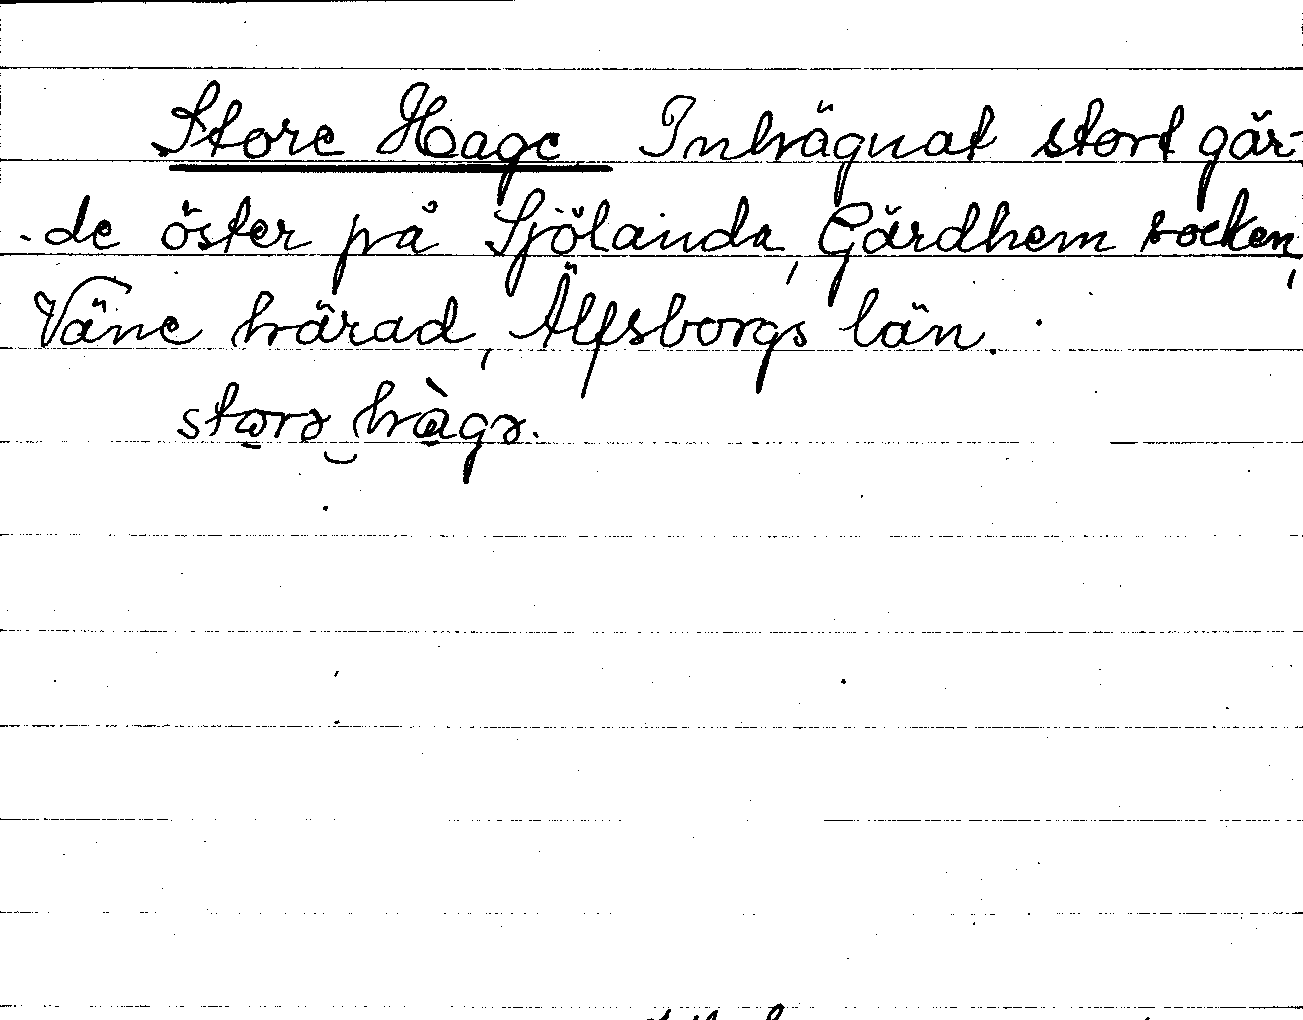 Store Hage Inhägnat stort gär-
de öster på Sjölanda, Gärdhem socken,
Väne härad, Älfsborgs län.
storə hàgə.